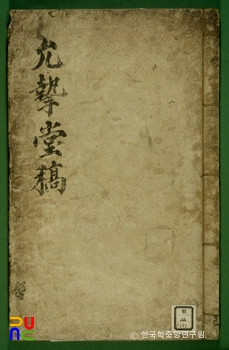 允摯堂稿
ⓒ 한국학중앙연구원